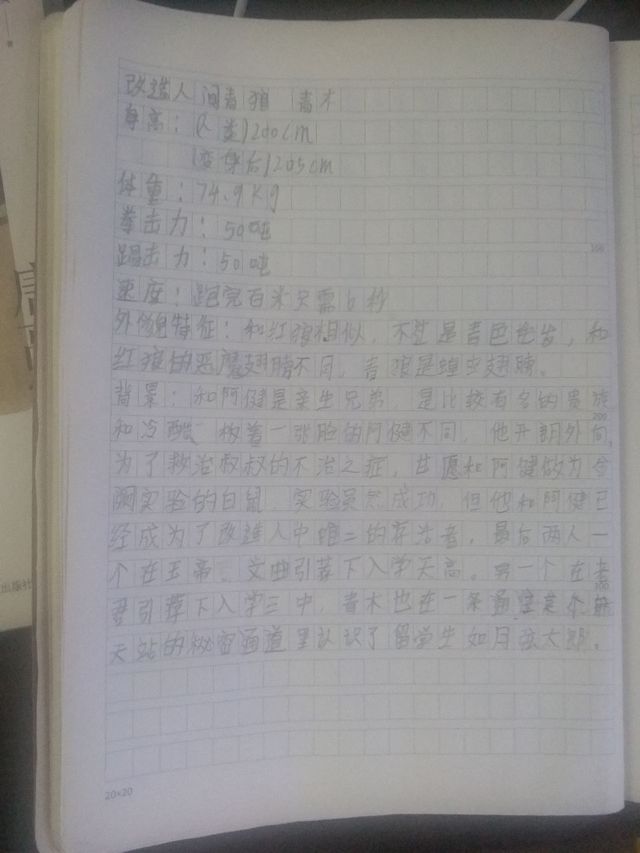 改造人间青狼 青木
身高：(人类)200cm
(变身后)205cm
体重：74.9kg
拳击力：50吨
踢击力：50吨
速度：跑完百米只需6秒
外貌特征：和红狼相似，不过是青色的，和
红狼的恶魔翅膀不同，青狼是昆虫翅膀。
背景：和阿健是亲生兄弟，是比较有名的贵族
和冷酷 板着一张脸的阿健不同，他开朗外向，
为了救治叔叔的不治之症，甘愿和阿健做为
实验的白鼠，实验虽然成功，但他和阿健已
经成为了改造人中唯二的存活者，最后两人一
个在王帝、文曲引荐下入学天高。另一个在
引荐下入学三中，青木也在一条通
天站的秘密通道里认识了留学生如月弦太郎。
20×20
出版社